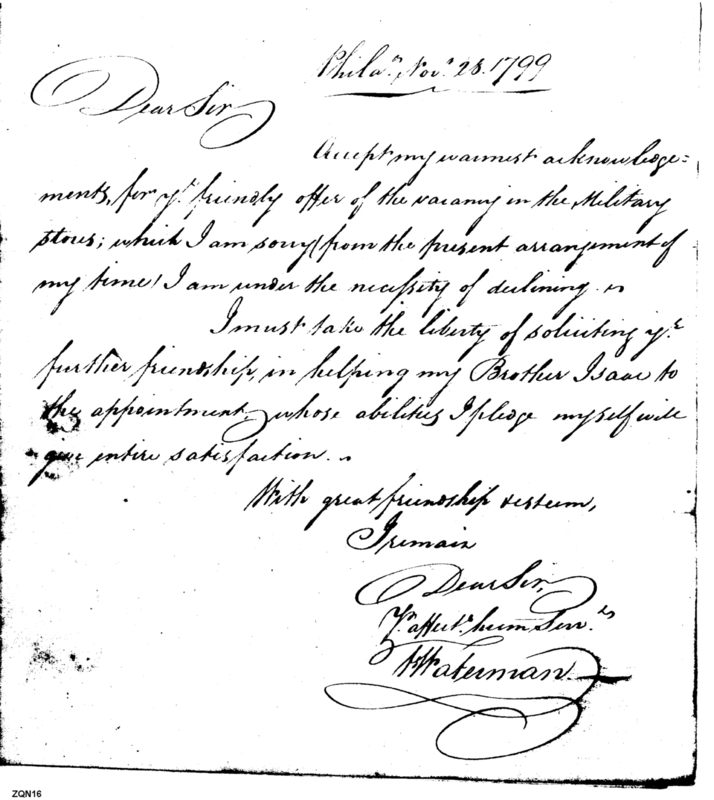 Philaᵃ. Novʳ. 28. 1799
Dear Sir
Accept my warmest acknowledge=
ments, for yʳ. friendly offer of the vacancy in the Military
stores; which I am sorry (from the present arrangement of
my time) I am under the necessity of declining.
I must take the liberty of soliciting yʳ.
further friendship, in helping my Brother Isaac to
the appointment, whose abilities I pledge myself will
give entire satisfaction.
With great friendship & esteem,
I remain
Dear Sir,
Yʳ. affectᵉ. hum. Servᵗ.
Waterman
ZQN16